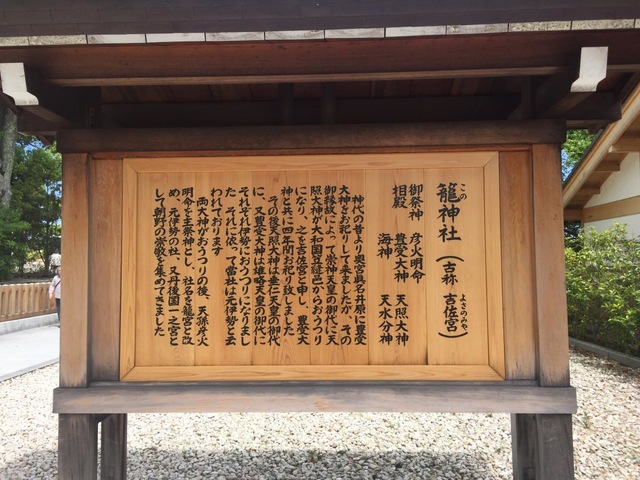 籠神社(古称 吉佐宮)
この
よさのみや
御祭神 彦火明命 天照大神
相殿 豊受大神 天水分神
海神
神代の昔より奥宮眞名井原に豊受
大神をお祀りして来ましたが、その
御縁故によって崇神天皇の御代に天
照大神が大和国笠縫邑からおうつり
になり、之を吉佐宮と申し、豊受大
神と共に四年間お祀り致しました
その後天照大神は垂仁天皇の御代
に、又豊受大神は雄略天皇の御代に
それぞれ伊勢におうつりになりまし
た それに依って當社は元伊勢と云
われております
両大神がおうつりの後、天孫彦火
明命を主祭神とし、社名を籠宮と改
め、元伊勢の社、又丹後国一之宮と
して朝野の崇敬を集めてきました